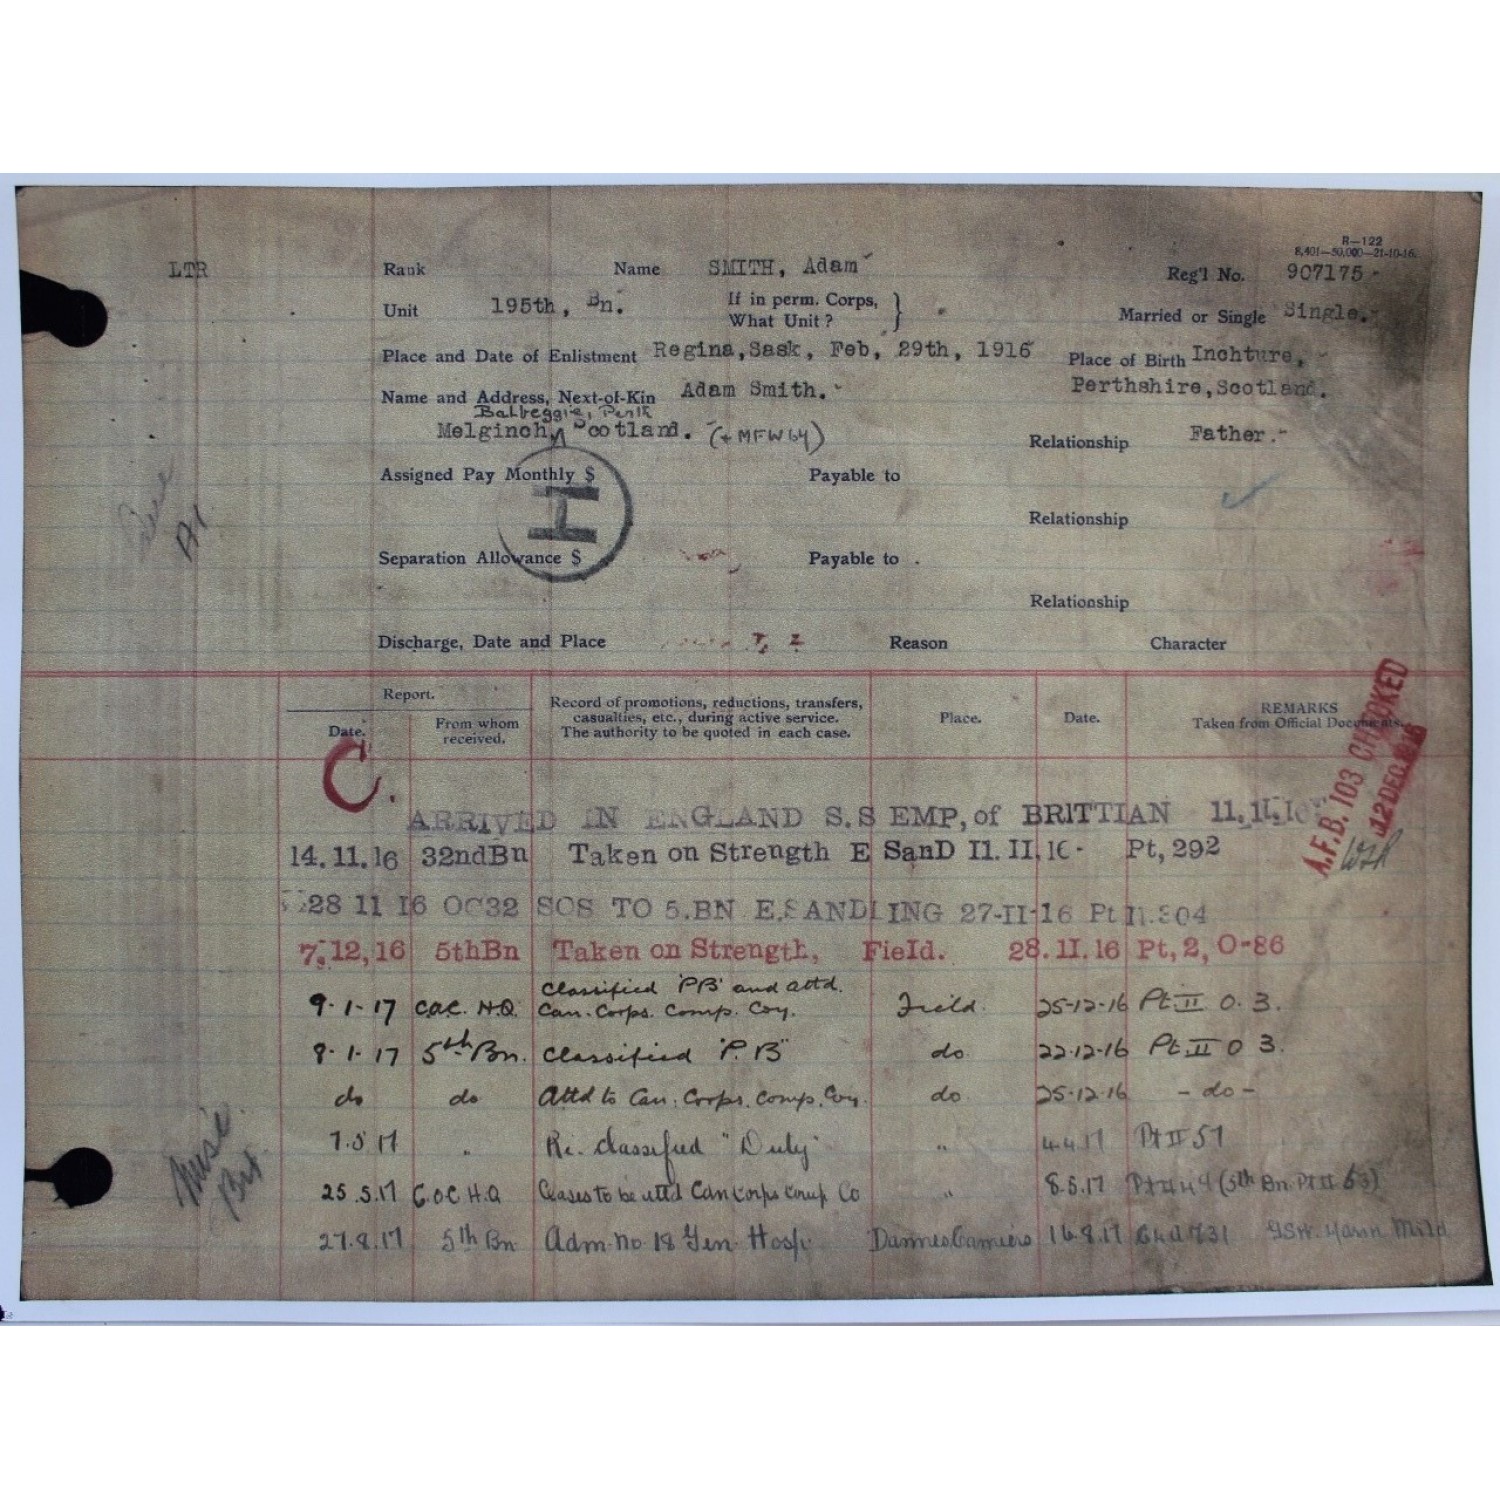 R—122
8,401—50,000—21-10-16.
LTR Rank Name SMITH, Adam Reg'l No. 907175
Unit 195th, Bn. If in perm. Corps, What Unit? Married or Single Single.
Place and Date of Enlistment Regina,Sask, Feb, 29th, 1916 Place of Birth Inchture,
Perthshire,Scotland.
Name and Address, Next-of-Kin Adam Smith.
Balbeggie, Perth
Melginch, Scotland. (+ MFW64) Relationship Father.
Assigned Pay Monthly $ Payable to
H
Relationship
Separation Allowance $ Payable to
Relationship
Discharge, Date and Place Reason Character
Report.
Date. From whom received.
Record of promotions, reductions, transfers, casualties, etc., during active service. The authority to be quoted in each case.
Place. Date. REMARKS Taken from Official Documents.
C.
A.F.B. 103 CHECKED
12 DEC. 1916
ARRIVED IN ENGLAND S.S EMP, of BRITTIAN 11.11.16
14.11.16 32ndBn Taken on Strength E SanD 11.11.16 Pt, 292
28 11 16 OC32 SOS TO 5.BN E.SANDLING 27-11-16 Pt II.304
7.12,16 5thBn Taken on Strength, Field. 28.11.16 Pt, 2, O-86
9-1-17 C.O.C. H.Q. Classified 'PB' and attd. Can. Corps. Comp. Coy. Field. 25-12-16 Pt. II O. 3.
8-1-17 5th Bn. Classified "P.B" do 22-12-16 Pt. II O 3.
do do Attd to Can. Corps. Comp. Coy. do 25-12-16 - do -
7.5.17 " Re. classified "Duty" " 4.4.17 Pt II 57
25.5.17 C.O.C H.Q Ceases to be attd Can Corps Comp Co " 8.5.17 (5th Bn. Pt II 63)
27.8.17 5th Bn Adm. No 18 Gen. Hosp Dannes Camiers 16.8.17 Mild